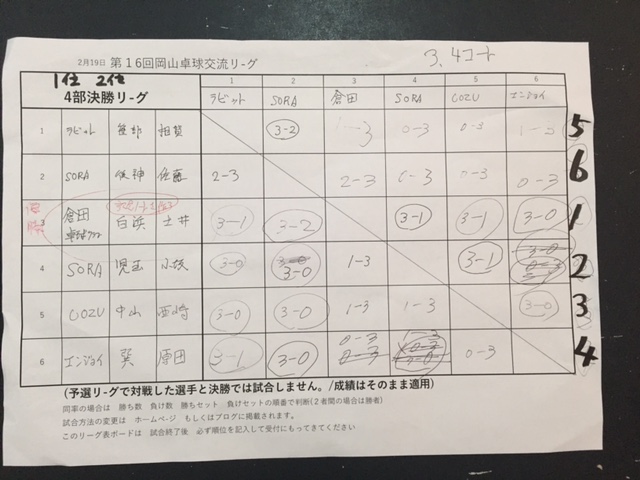 2月19日 第16回岡山卓球交流リーグ
3、4コート
1位 2位
4部決勝リーグ
1 2 3 4 5 6
ラビット SORA 倉田 SORA COZU エンジョイ
1 ラビット 相賀 3-2 1-3 0-3 0-3 1-3 5
2 SORA 佐藤 2-3 2-3 0-3 0-3 0-3 6
3 倉田 卓球クラブ 白浜 土井 3-1 3-2 3-1 3-1 3-0 1
優勝
4 SORA 児玉 小坂 3-0 3-0 1-3 3-1 2
5 COZU 中山 西崎 3-0 3-0 1-3 1-3 3-0 3
6 エンジョイ 巽 原田 3-1 3-0 0-3 0-3 0-3 4
(予選リーグで対戦した選手と決勝では試合しません。/成績はそのまま適用)
同率の場合は 勝ち数 負け数 勝ちセット 負けセットの順番で判断(2者間の場合は勝者)
試合方法の変更は ホームページ もしくはブログに掲載されます。
このリーグ表ボードは 試合終了後 必ず順位を記入して受付にもってきてください